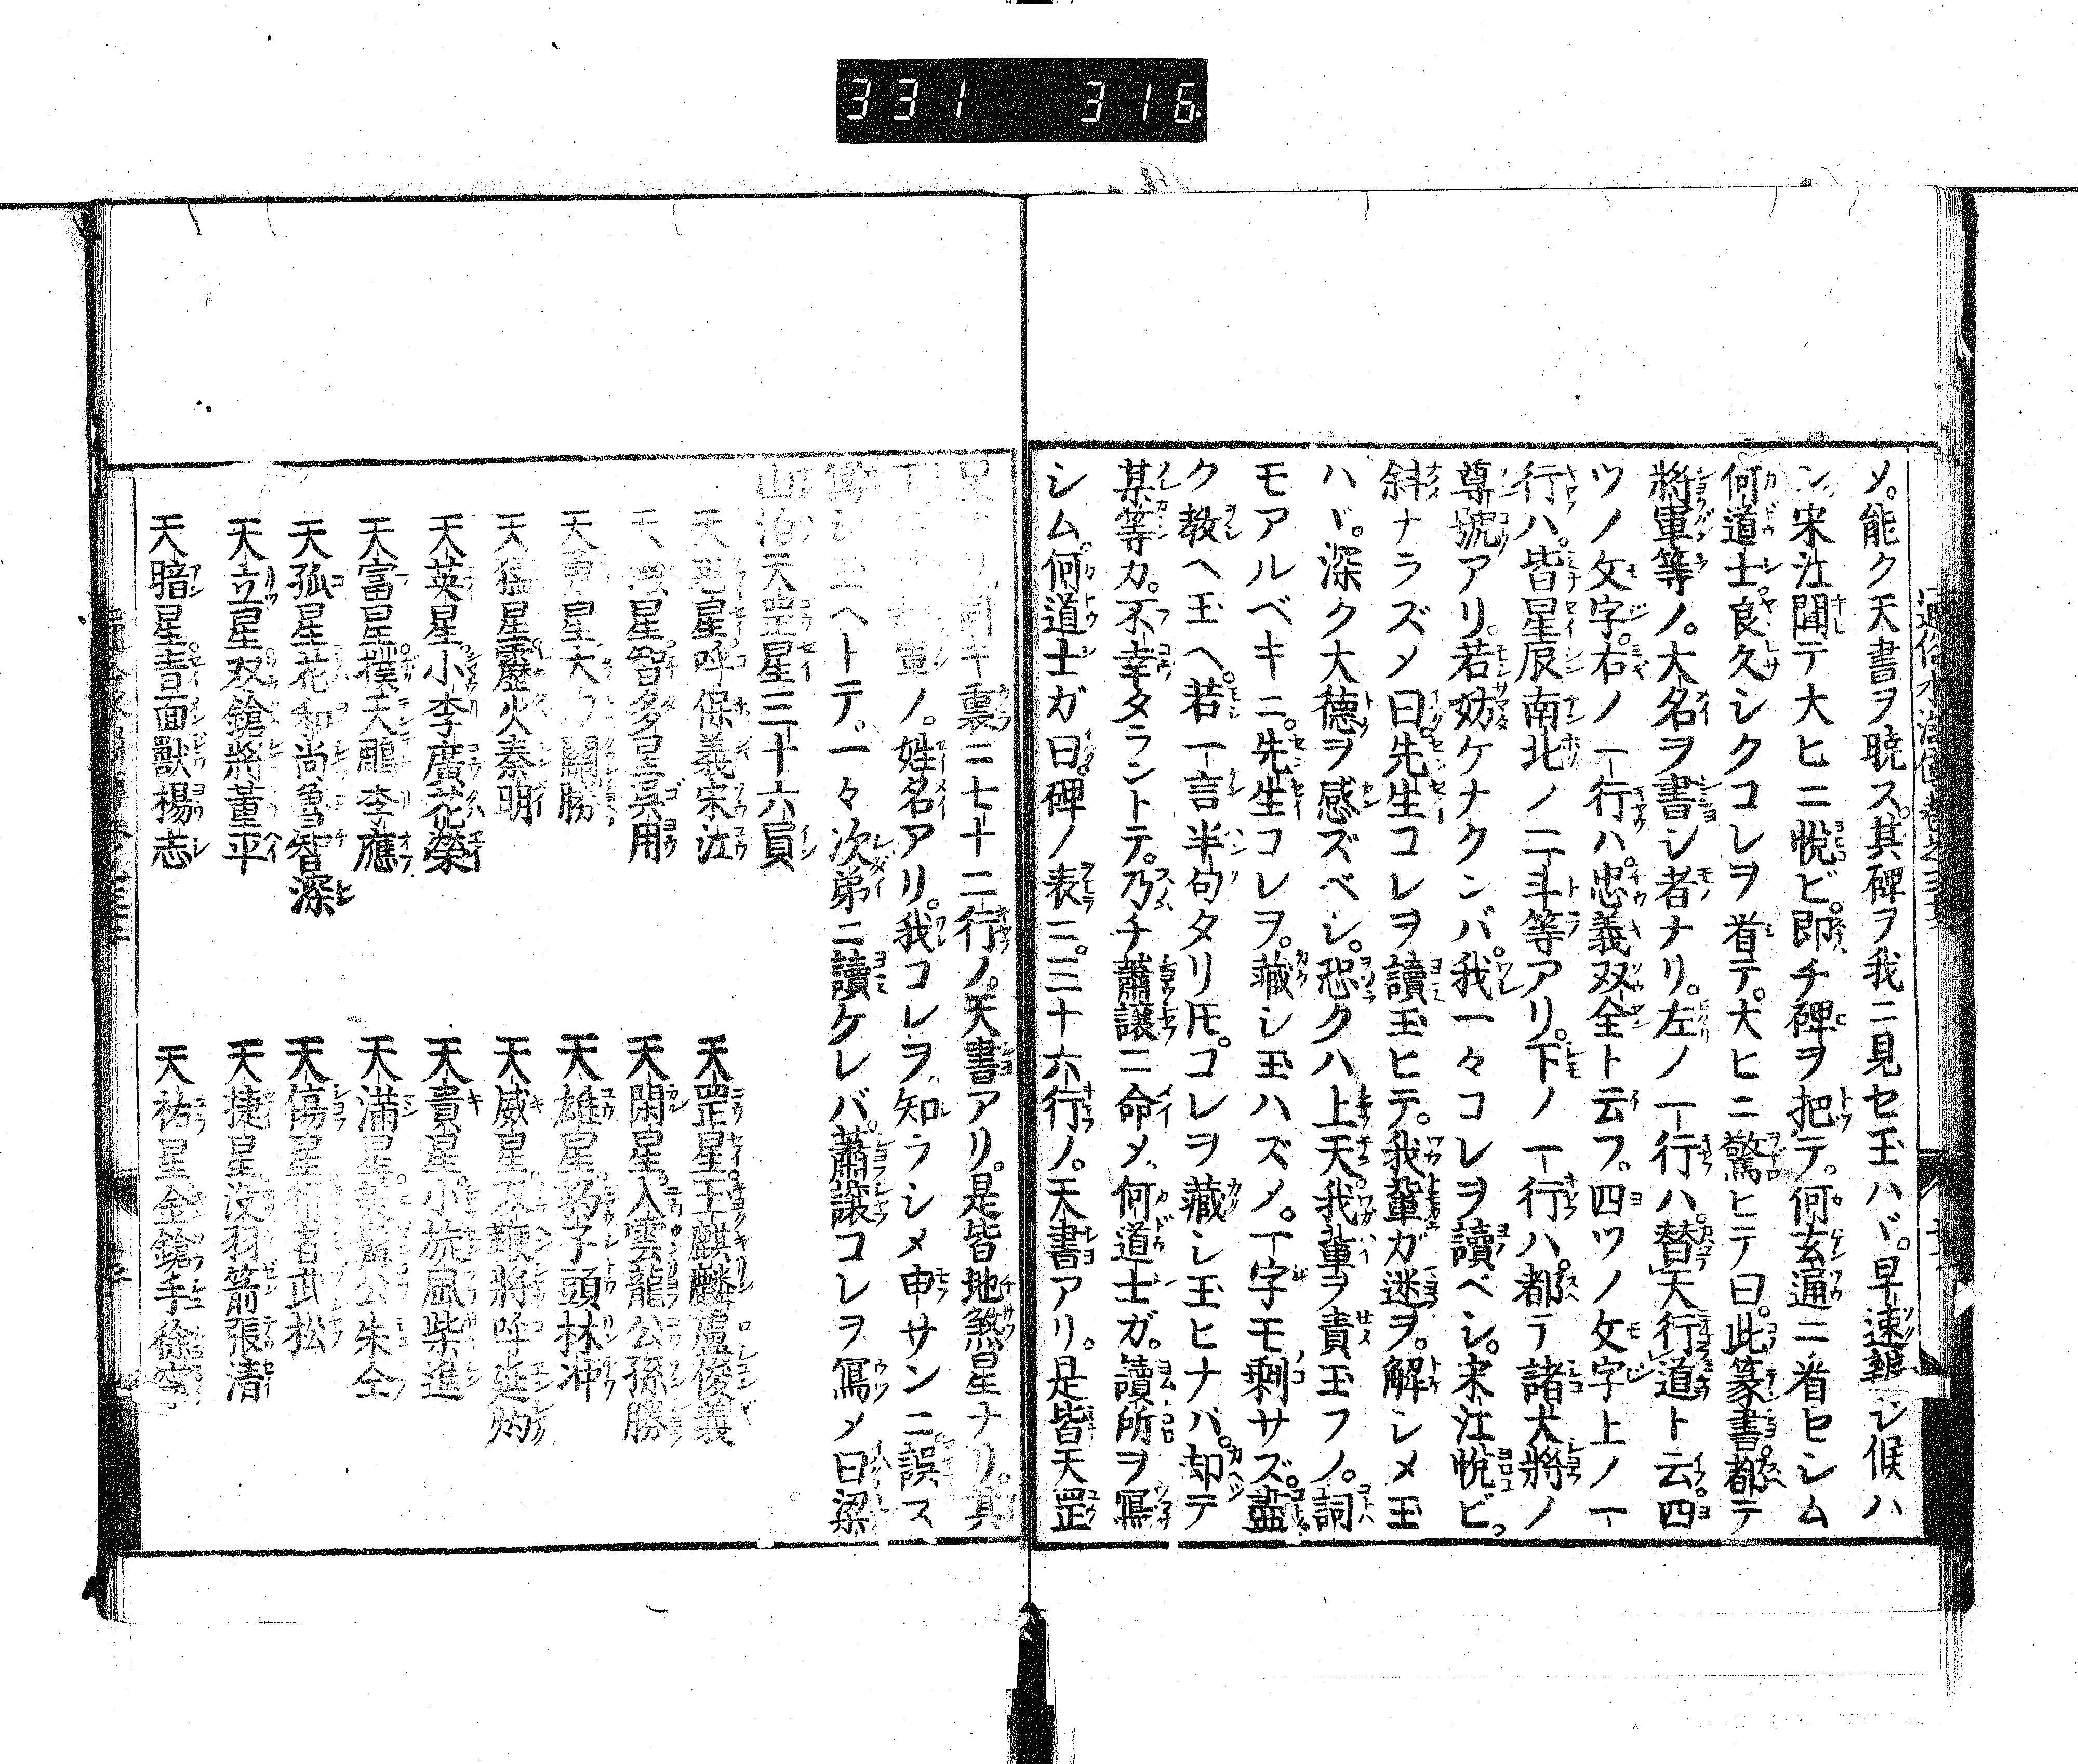 331 316
メ。能ク天書ヲ暁ス。其碑ヲ我ニ見セ玉ハヾ。早速報シ候ハ
ン。宋江聞テ大ヒニ悦ビ。即チ碑ヲ把テ。何玄通ニ看セシム
何道士。良久シクコレヲ看テ。大ヒニ驚ヒテ曰。此篆書都テ
將軍等ノ。大名ヲ書シ者ナリ。左ノ一行ハ。替天行道ト云四
ツノ文字。右ノ一行ハ。忠義双全ト云フ。四ツノ文字上ノ一
行ハ。皆星辰南北ノ二斗等アリ。下ノ一行ハ。都テ諸大將ノ
尊號アリ。若妨ケナクンバ。我一々コレヲ讀ベシ。宋江悦ビ。
斜ナラズメ曰。先生コレヲ讀玉ヒテ。我輩ガ迷ヲ。解シメ玉
ハヾ。深ク大徳ヲ感ズベシ。恐クハ上天。我輩ヲ責玉フノ。詞
モアルベキニ。先生コレヲ。藏シ玉ハズメ。一字モ剰サズ。盡
ク教ヘ玉ヘ。若一言半句タリ𪜈。コレヲ藏シ玉ヒナバ。却テ
某等カ。不幸タラントテ。乃チ蕭譲ニ命メ。何道士ガ。讀所ヲ寫
シム。何道士ガ曰。碑ノ表ニ。三十六行ノ。天書アリ。是皆天罡
星ナリ。同キ裏ニ七十二行ノ。天書アリ。是皆地煞星ナリ。其
下ノ。姓名アリ。我コレヲ知ラシメ申サンニ。誤ス
寫シ玉ヘトテ。一々次弟ニ讀ケレバ。蕭譲コレヲ寫メ曰梁
山泊天罡星三十六員
天魁星。呼保義宋江 天罡星。玉麒麟盧俊義
天機星。智多星呉用 天閑星。入雲龍公孫勝
天勇星。大刀關勝 天雄星。豹子頭林冲
天猛星。霹靂火秦明 天威星。双鞭將呼延灼
天英星。小李廣花榮 天貴星。小旋風柴進
天富星。撲天鵰李應 天満星。美髯公朱仝
天孤星。花和尚魯智深 天傷星。行者武松
天立星。双鎗將董平 天捷星。没羽箭張清
天暗星。青面獸楊志 天祐星。金鎗手徐寧